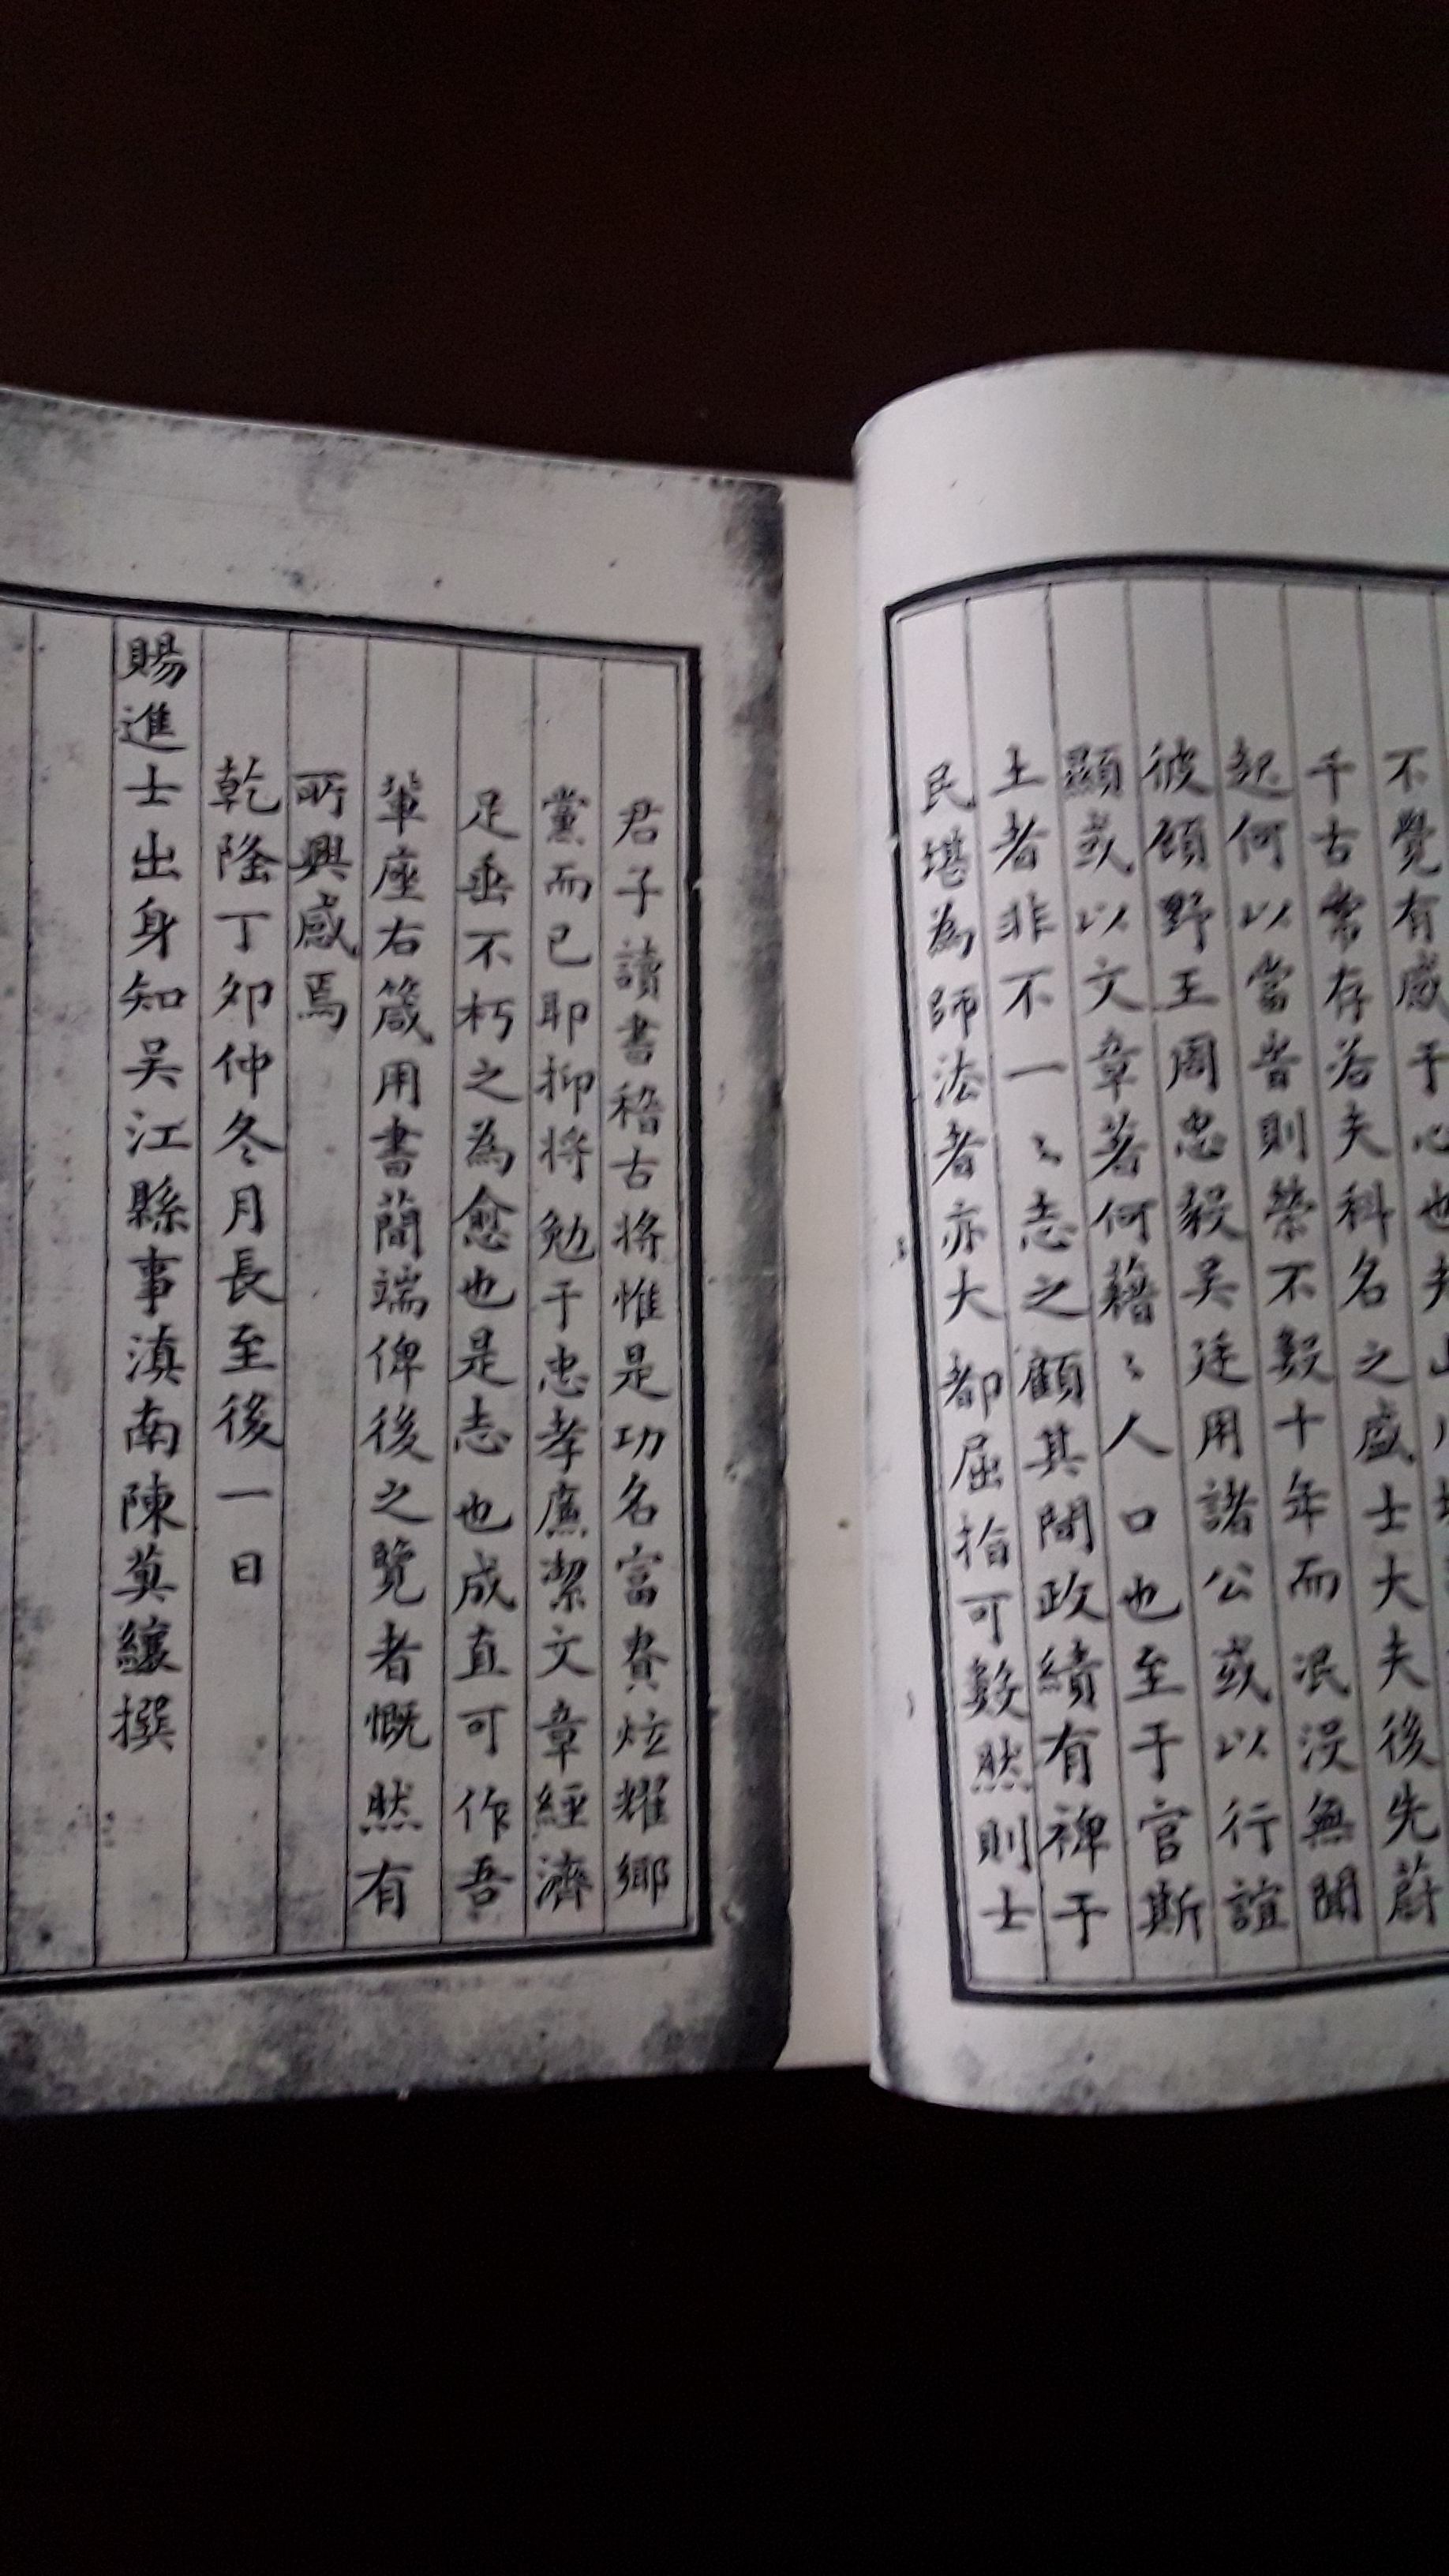 不覺有感于心也夫山川
千古常存若夫科名之盛士大夫後先蔚
起何以當昔則榮不數十年而泯没無聞
彼顧野王周忠毅吴廷用諸公或以行誼
顯或以文章著何藉〻人口也至于官斯
土者非不一〻志之顧其間政績有裨于
民堪為師法者亦大都屈指可數然則士
君子讀書稽古將惟是功名富貴炫耀鄉
黨而已耶抑將勉于忠孝廉潔文章經濟
足垂不朽之為愈也是志也成直可作吾
軰座右箴用書簡端俾後之覽者慨然有
所興感焉
乾隆丁夘仲冬月長至後一日
賜進士出身知吴江縣事滇南陳𦸣纕撰